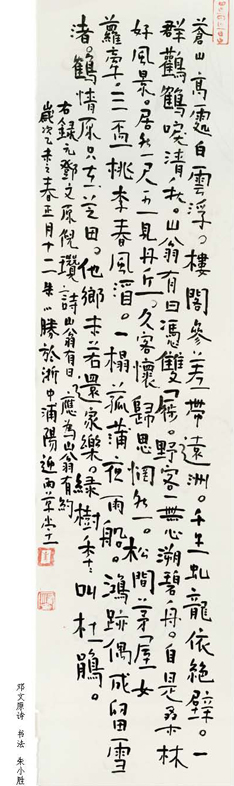 蒼山高處白雲浮。樓閣參差帶遠洲。千年虬龍依絕壁。一
群鸛鶴唳清秋。山翁有曰馮雙屐。野客無心溯碧舟。自是林
好風景。居然一見丹丘。久客懷歸思惘然。松間茅屋女
蘿牽。三盃桃李春風酒。一榻菰蒲夜雨船。鴻跡偶成留雪
渚。鶴情原只在芝田。他鄉未若還家樂。綠樹年年叫杜鵑。
右錄元鄧文原倪瓚詩山翁有曰應為山翁有約
歲次乙未之春正月十二朱小勝於浙中浦陽近雨草堂
邓文原诗 书法 朱小胜